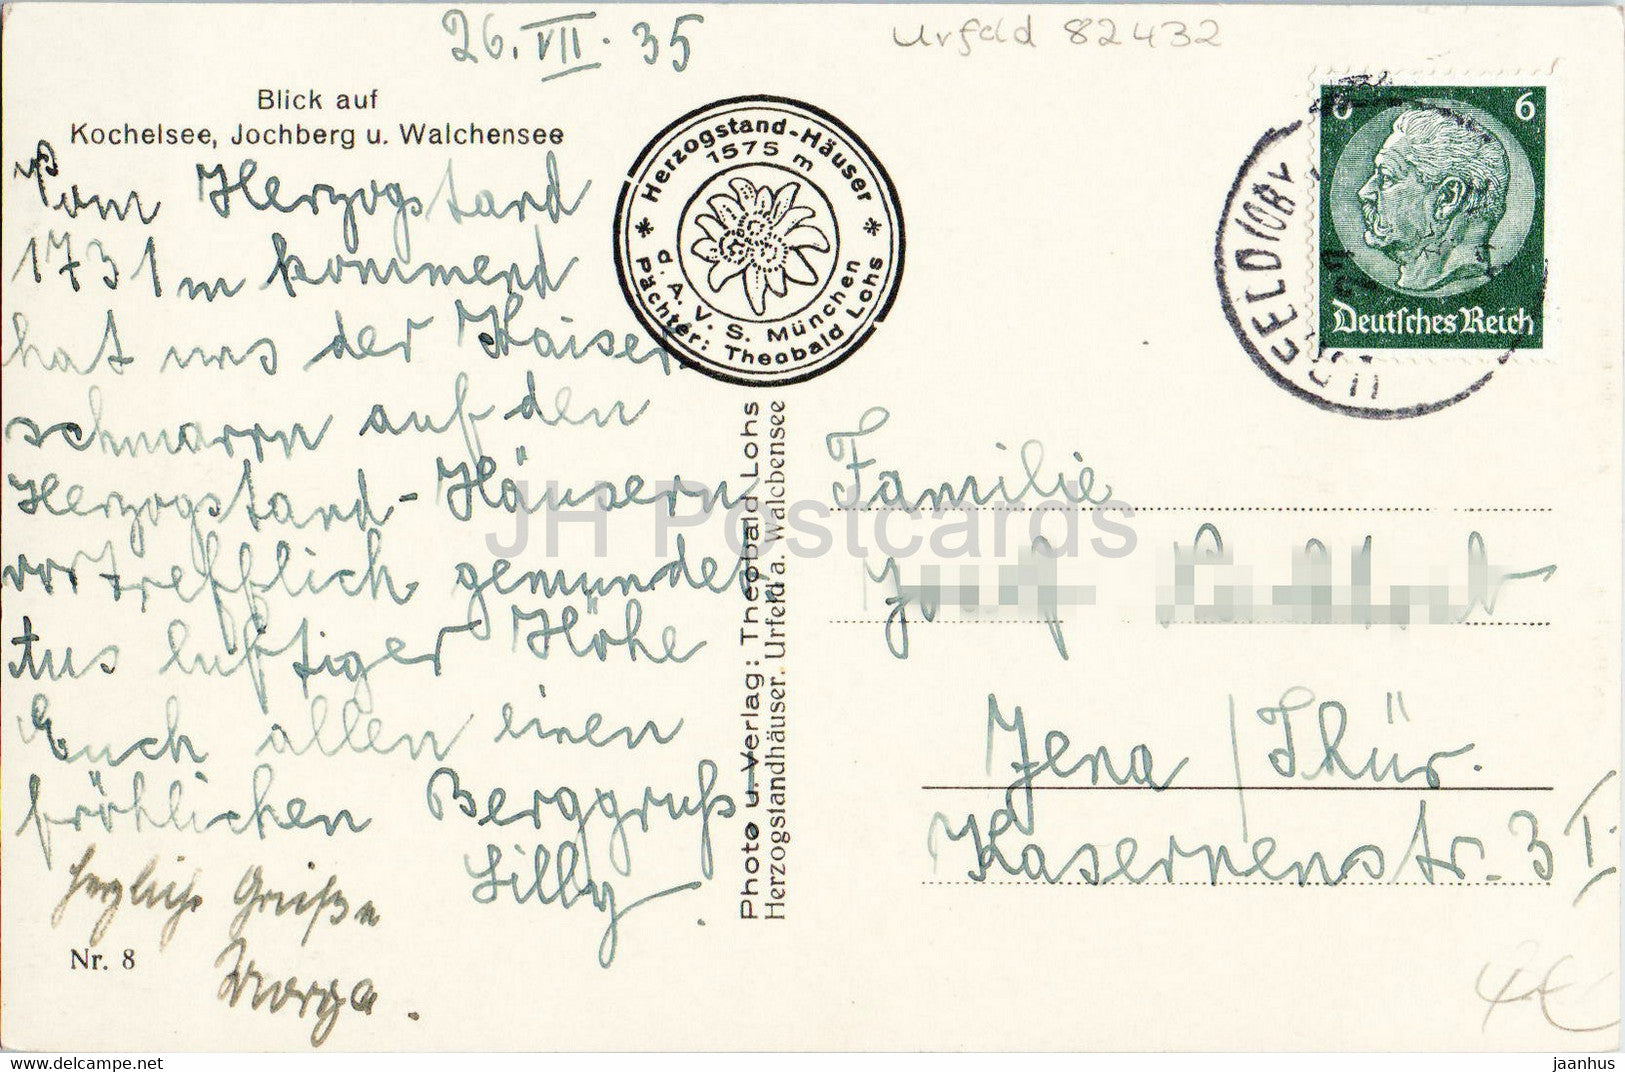 26.VII.35
Urfeld 82432
Blick auf
Kochelsee, Jochberg u. Walchensee
Vom Herzogstand
1731 m kommend
hat uns der Kaiser
schmarrn auf den
Herzogstand-Häusern
vortrefflich gemundet
Aus luftiger Höhe
Euch allen einen
fröhlichen Berggruß
Lilly.
herzliche Grüße
Nr. 8
* Herzogstand-Häuser *
1575 m
d. A. V. S. München
Pächter: Theobald Lohs
Photo u. Verlag: Theobald Lohs
Herzogstandhäuser. Urfeld a. Walchensee
URFELD (OBB)
6 6
Deutsches Reich
Familie
Jena / Thür.
Kasernenstr. 3 I.
4€
JH Postcards
hippostcard.com
jaanhus